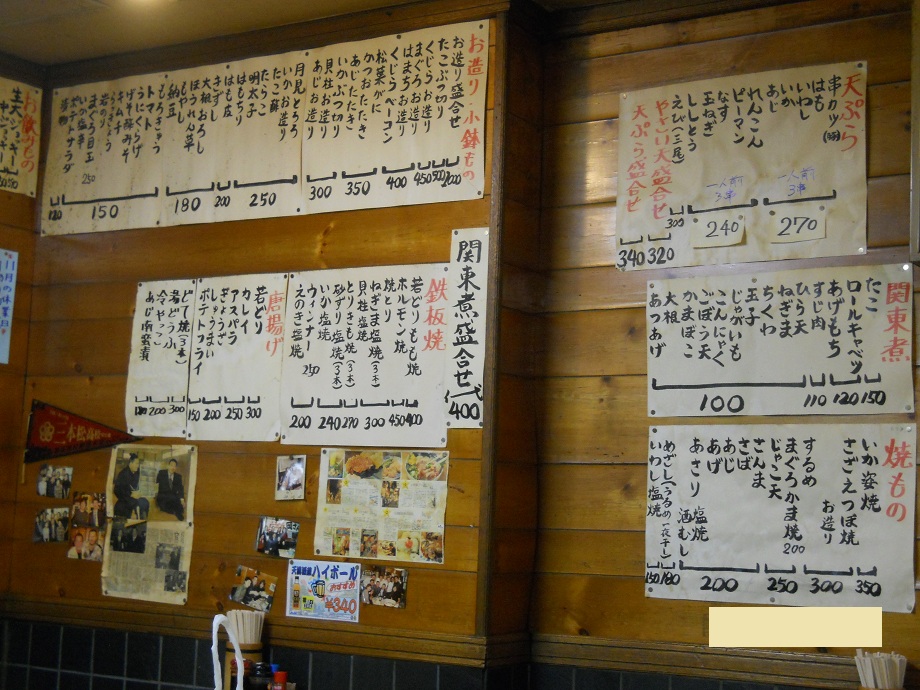 お造り・小鉢もの
お造り盛合せ
たこぶつ切り
くじらお造り
まぐろお造り
はまちお造り
くじらベーコン
松葉がに
かつおたたき
あじたたき
いかぶつ切り
貝柱お造り
あじお造り
月見とろろ
いかお造り
たらこ
明太子
はもちり
はも皮
きずし
大根おろし
ほうれん草
もやし
納豆
もろきゅう
トマト
うにくらげ
キムチ
らっきょう
若さ
まぐろ目玉 250
いか塩辛
ポテトサラダ
150
180
200
250
300
350
400
450
500
関東煮盛合せ
400
鉄板焼
若どりもも焼
ホルモン焼
焼とり
ねぎま塩焼(3本)
貝柱塩焼
とりきも焼(3本)
砂ずり塩焼(3本)
いか塩焼
ウィンナー 250
えのき塩焼
200
240
270
300
450
400
唐揚げ
若どり
カレイ
アスパラ
しゅうまい
ポテトフライ
150
200
250
300
どて焼(3本)
湯どうふ
冷やっこ
あじ南蛮漬
200
300
天ぷら
串カツ
はも
いわし
いか
あじ
れんこん
ピーマン
なす
玉ねぎ
ししとう
えび(三尾)
やさい大盛合せ
天ぷら盛合せ
一人前
3串
一人前
3串
340
320
300
240
270
関東煮
たこ
ロールキャベツ
あげもち
すじ肉
ひら天
ねぎま
ちくわ
玉子
じゃがいも
こんにゃく
ごぼう天
かまぼこ
大根
あつあげ
100
110
120
150
焼もの
いか姿焼
さざえつぼ焼
お造り
するめ
まぐろかま焼 200
じゃこ天
さんま
さば
あじ
あげ
あさり 塩焼
酒むし
めざし(うるめ一夜干し)
いわし塩焼
150
180
200
250
300
350
ハイボール
おすすめ
¥340